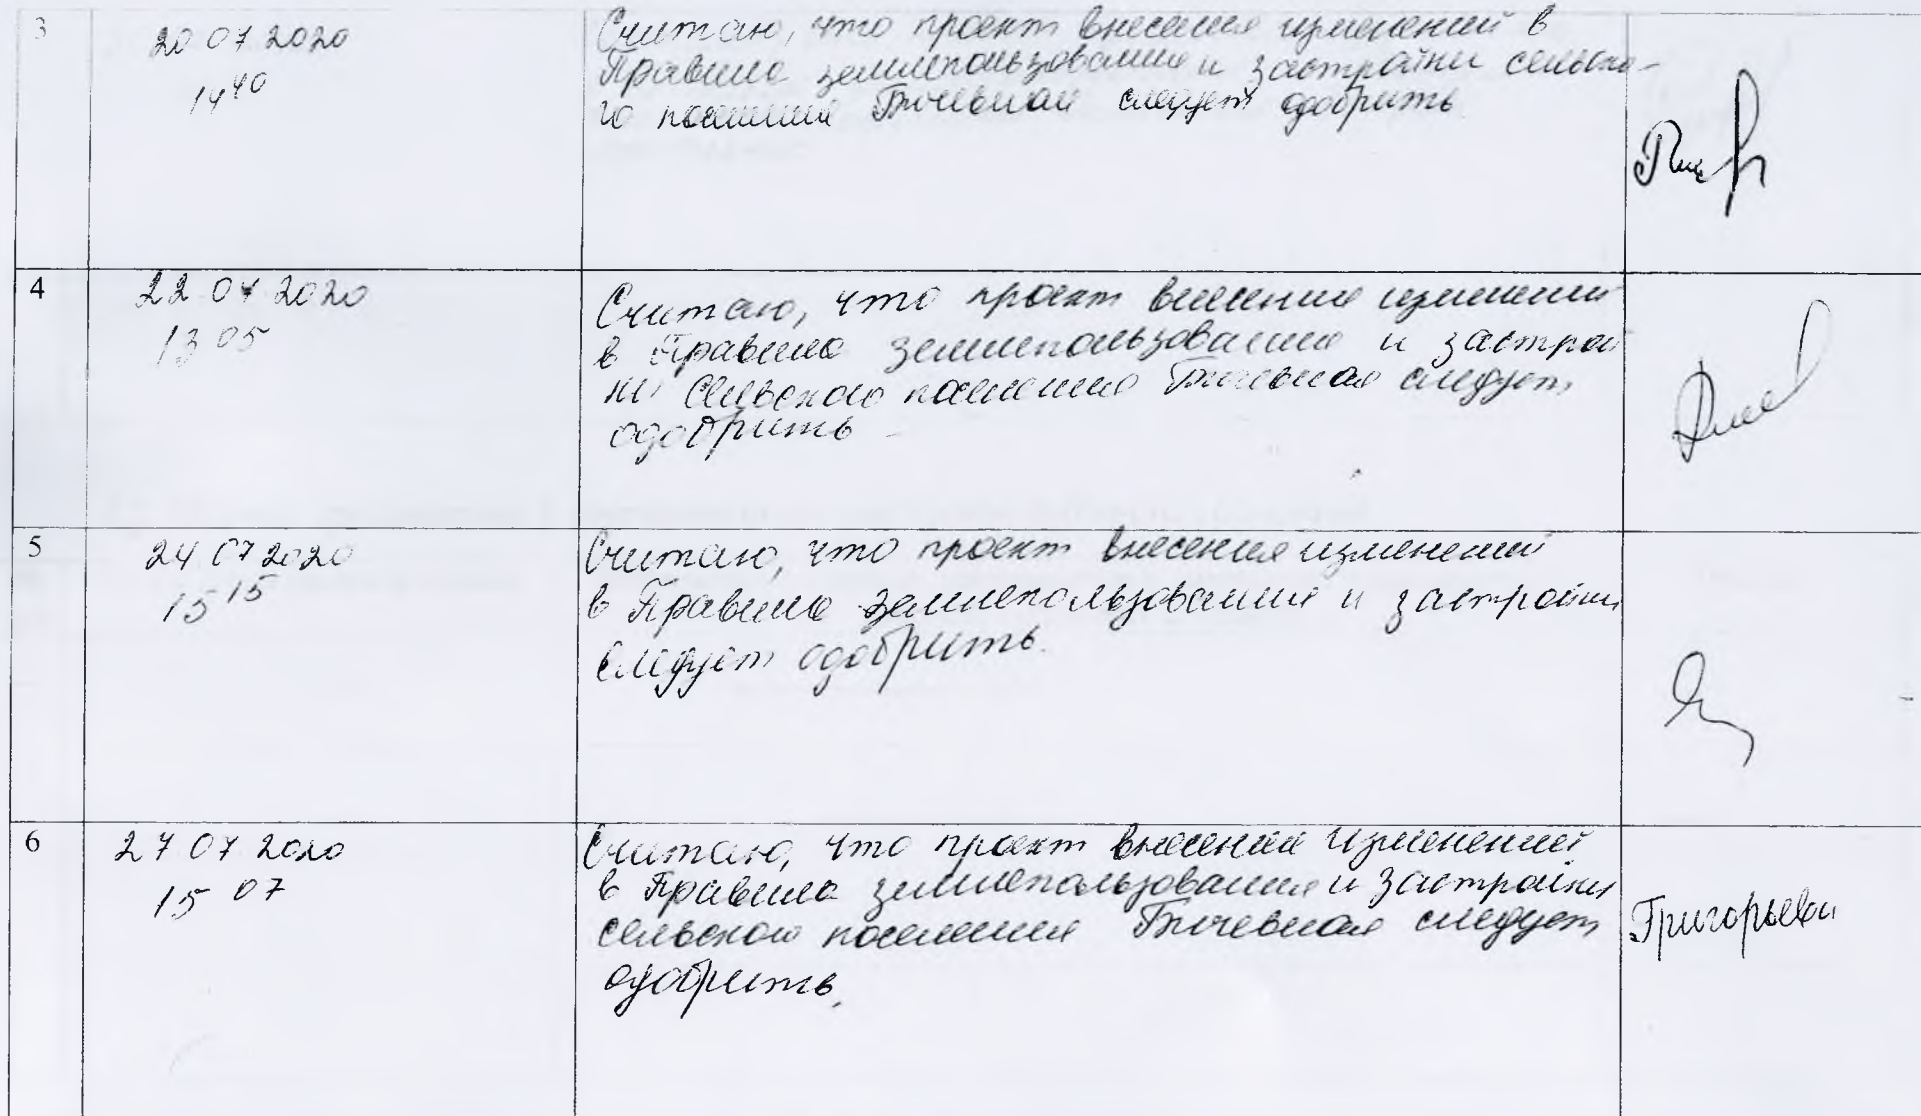 3
20 07 2020
14 40
Считаю, что проект внесения изменений в
Правила землепользования и застройки сельско-
го поселения следует одобрить
4
22 07 2020
13 05
Считаю, что проект внесения изменений
в Правила землепользования и застрой
ки сельского поселения следует
одобрить
5
24 07 2020
15 15
Считаю, что проект внесения изменений
в Правила землепользования и застройки
следует одобрить.
6
27 07 2020
15 07
Считаю, что проект внесения изменений
в Правила землепользования и застройки
сельского поселения следует
одобрить.
Григорьева